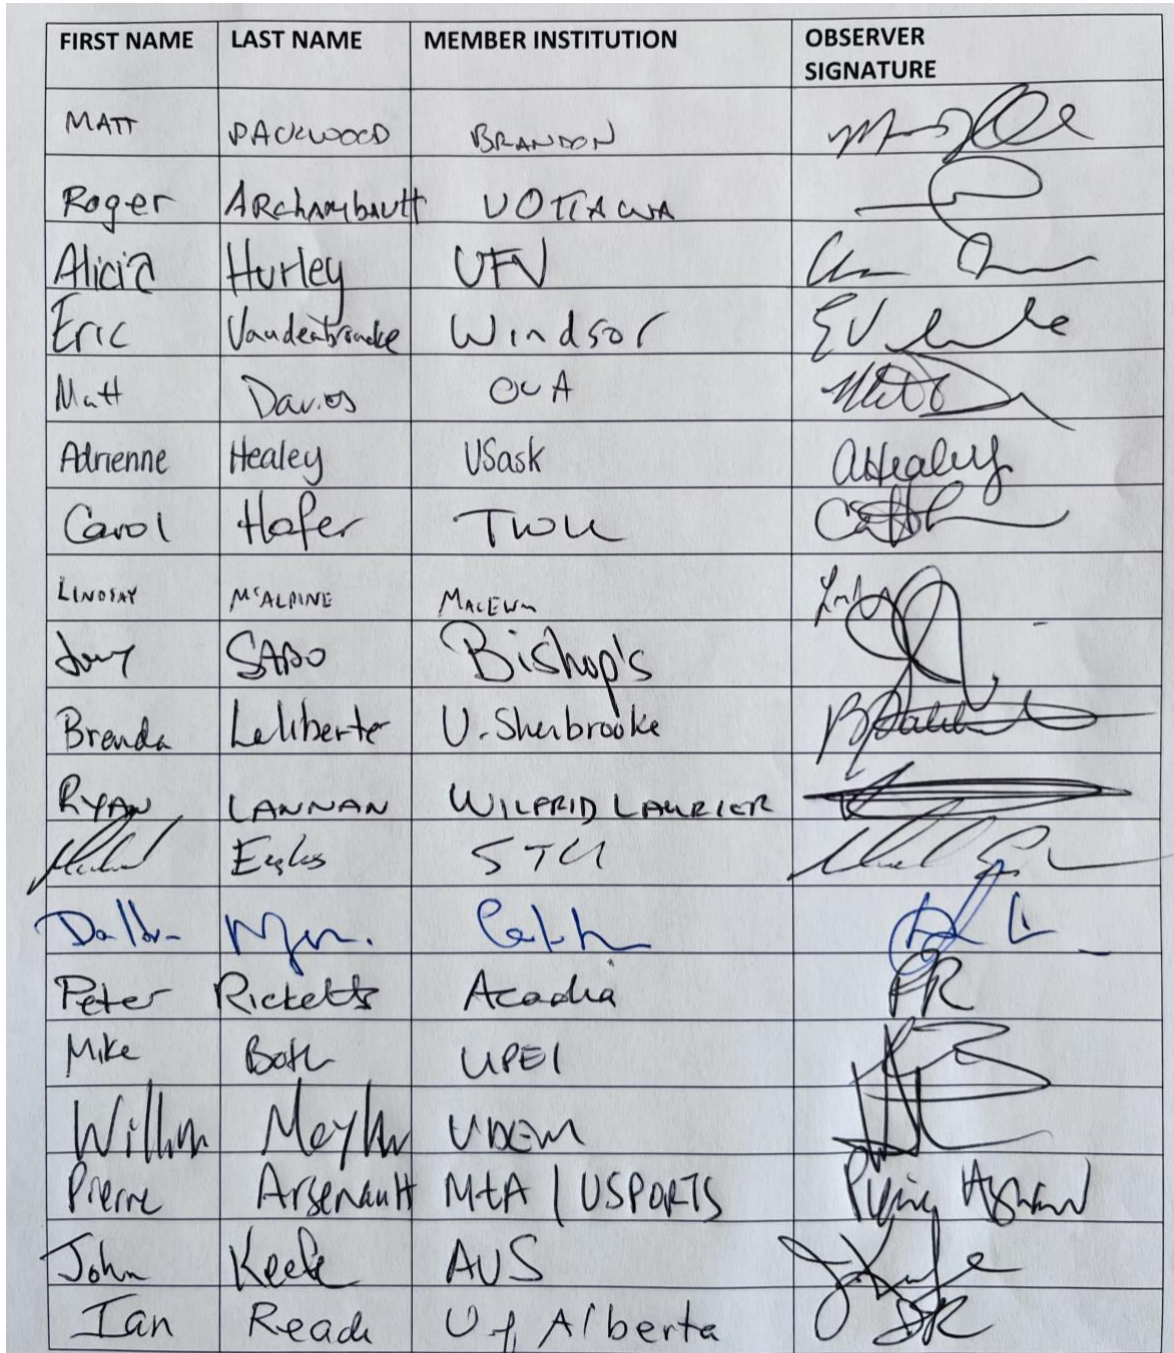 FIRST NAME LAST NAME MEMBER INSTITUTION OBSERVER
SIGNATURE
MATT PACKWOOD BRANDON
Roger ARchambault UOTTAWA
Alicia Hurley UFV
Eric Vandenbroucke Windsor EV
Matt Davies OUA
Adrienne Healey USask AHealey
Carol Hofer TWU
LINDSAY McALPINE MACEWan
SABO Bishop's
Brenda Laliberte U. Sherbrooke
RYAN LANNAN WILFRID LAURIER
STU
Peter Ricketts Acadia PR
Mike Both UPEI
UDEM
Pierre Arsenault MtA / USPORTS
John Keefe AUS
Ian Reade U of Alberta